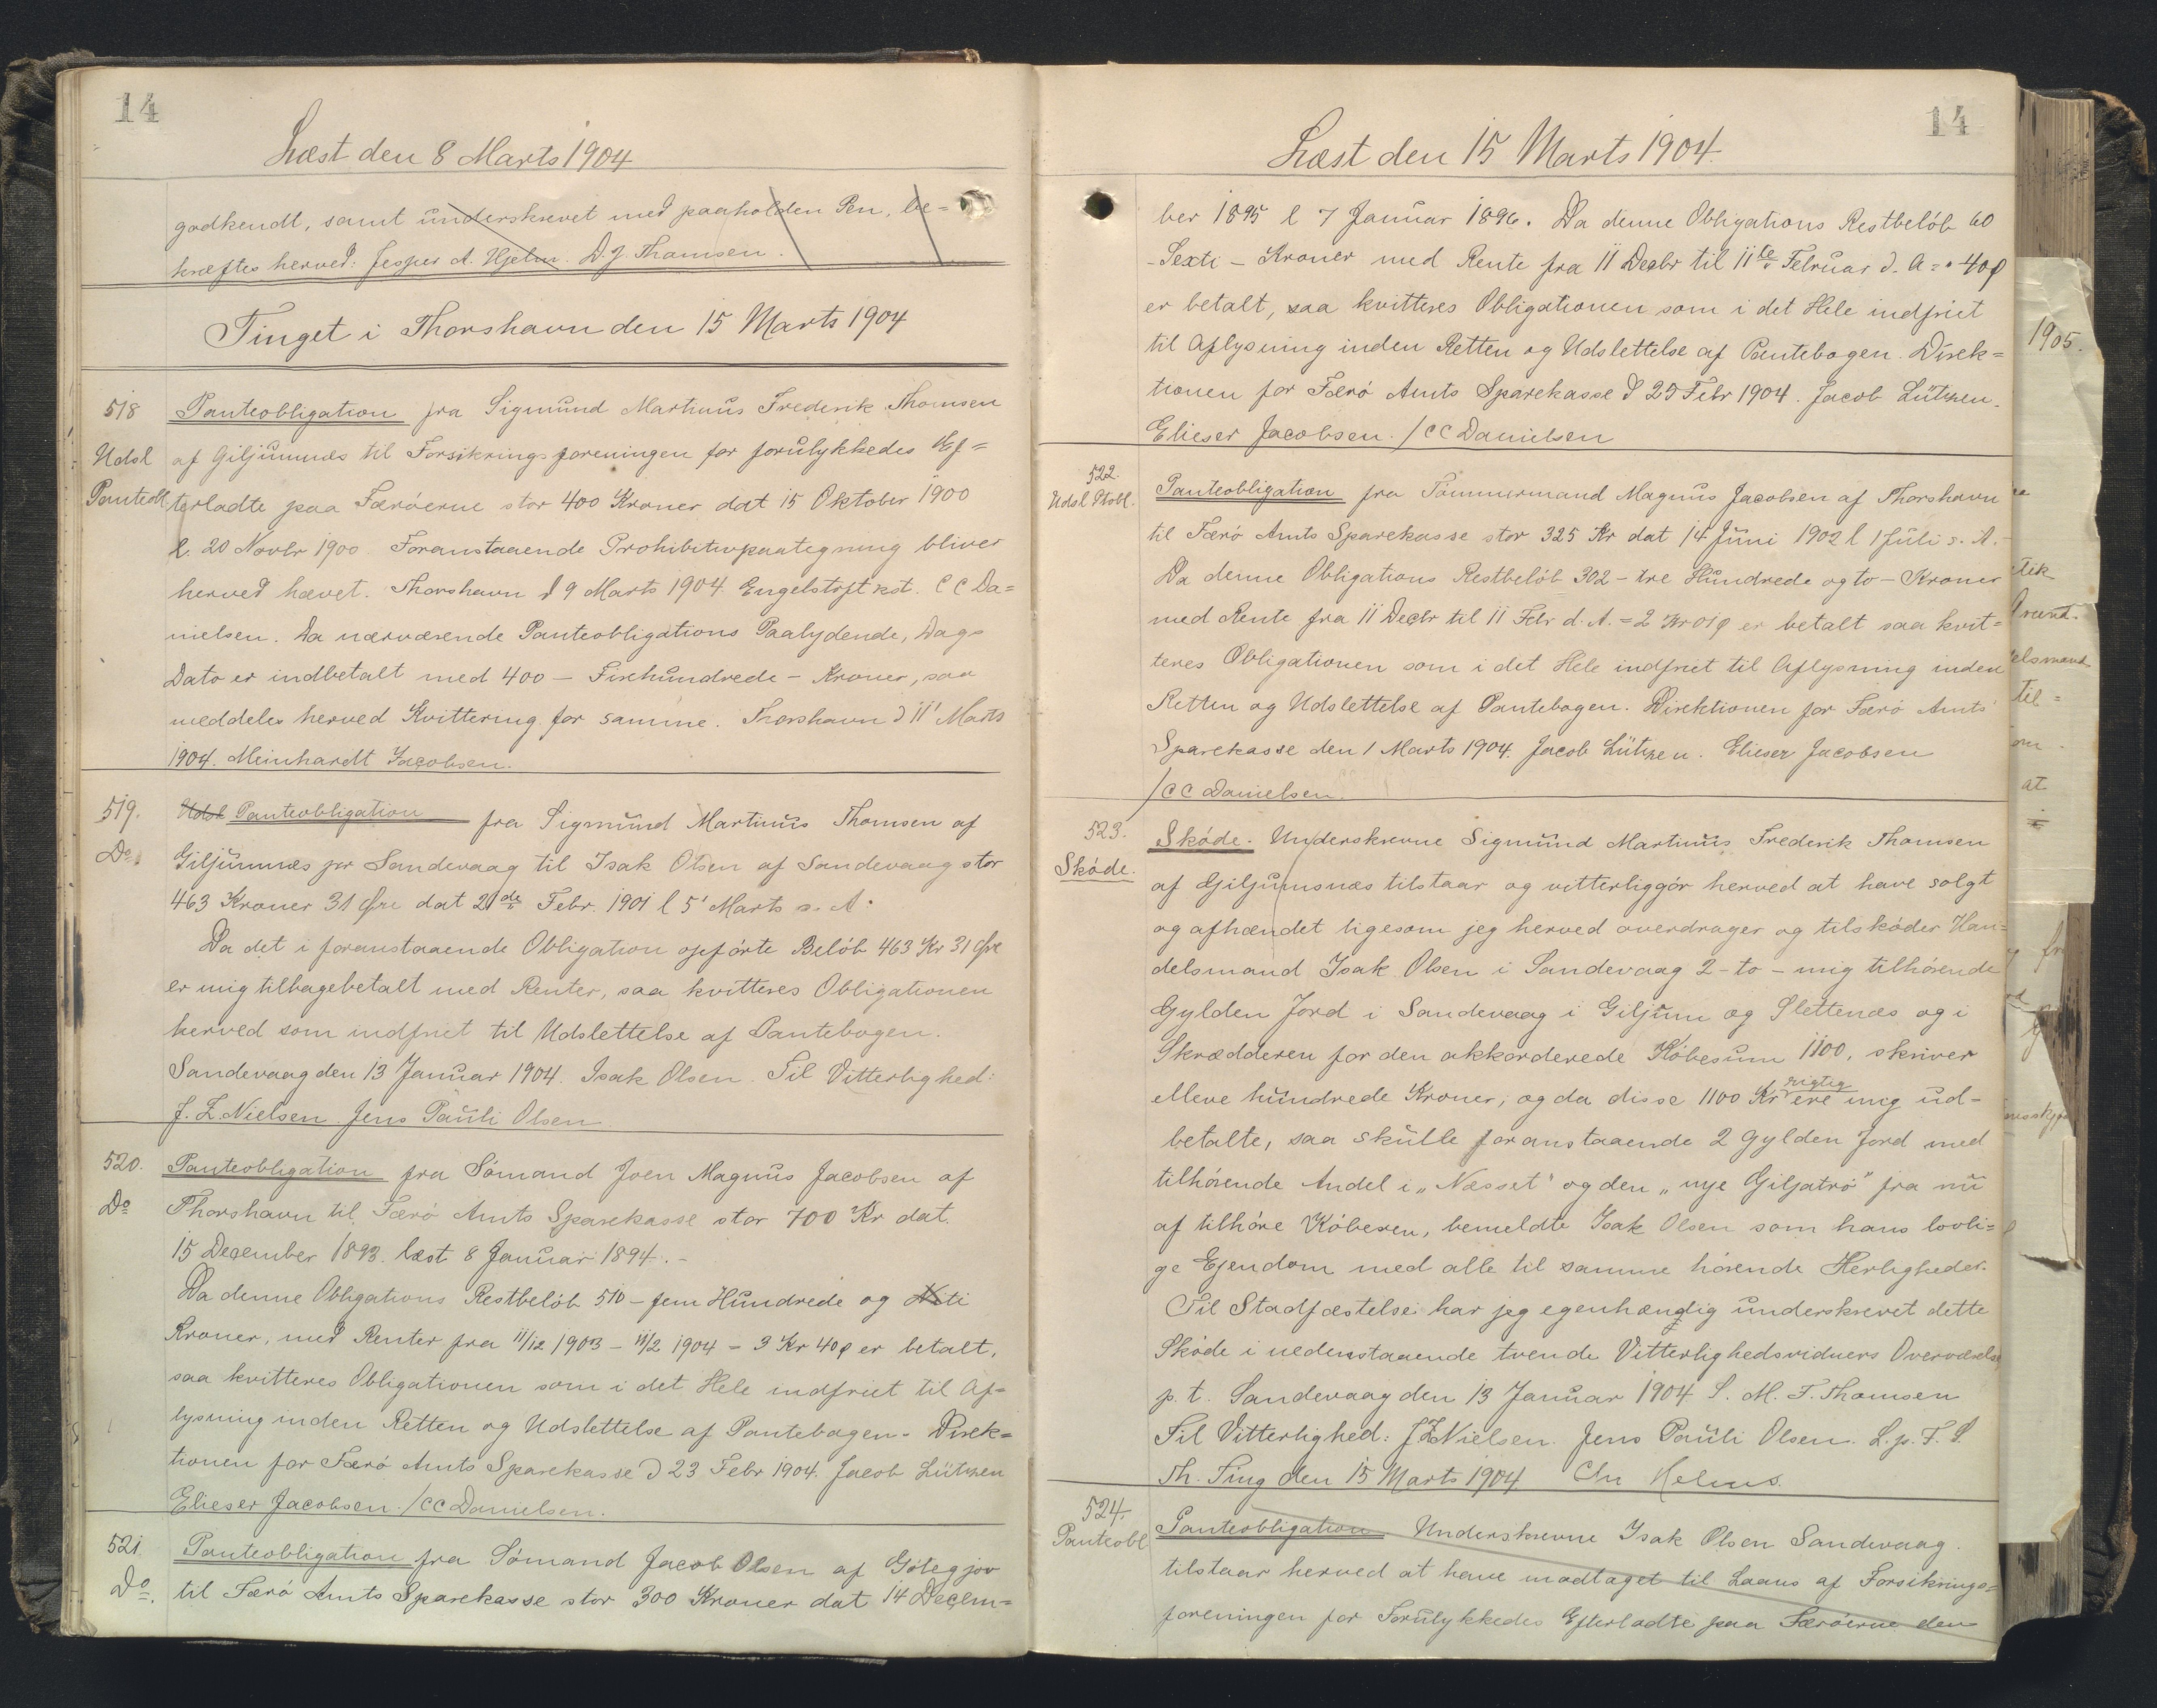 14
Læst den 8 Marts 1904
godkendt, samt underskrevet med paaholden Pen, be=
kræftes herved: Jesper A. Hjelm. D. J. Thomsen.
Tinget i Thorshavn den 15 Marts 1904
518 Panteobligation fra Sigmund Martinus Frederik Thomsen
Udsl af Giljumnæs til Forsikringsforeningen for forulykkedes Ef=
Panteobl terladte paa Færöerne stor 400 Kroner dat 15 Oktober 1900
l. 20 Novbr 1900. Foranstaaende Prohibitivpaategning bliver
herved hævet. Thorshavn d 9 Marts 1904 Engelstoft kst. C C Da=
nielsen. Da nærværende Panteobligations Paalydende, Dags
Dato er indbetalt med 400 – Firehundrede – Kroner, saa
meddeles herved Kvittering for samme. Thorshavn d 11' Marts
1904. Meinhardt Jacobsen.
519. Udsl Panteobligation fra Sigmund Martinus Thomsen af
Do Giljumnæs pr Sandevaag til Isak Olsen af Sandevaag stor
463 Kroner 31 Øre dat 21de Febr. 1901 l 5' Marts s. A.
Da det i foranstaaende Obligation opförte Belöb 463 Kr 31 Øre
er mig tilbagebetalt med Renter, saa kvitteres Obligationen
herved som indfriet til Udslettelse af Pantebogen.
Sandevaag den 13 Januar 1904. Isak Olsen. Til Vitterlighed:
J. Z. Nielsen. Jens Pauli Olsen.
520. Panteobligation fra Sömand Joen Magnus Jacobsen af
Do Thorshavn til Færö Amts Sparekasse stor 700 Kr dat.
15 December 1893. læst 8 Januar 1894. –
Da denne Obligations Restbelöb 510 – fem Hundrede og Ti
Kroner, med Renter fra 11/12 1903 – 11/2 1904 = 3 Kr 40 ø er betalt,
saa kvitteres Obligationen som i det Hele indfriet til Af=
lysning inden Retten og Udslettelse af Pantebogen. Direk=
tionen for Færö Amts Sparekasse d 23 Febr 1904. Jacob Lützen
Elieser Jacobsen. / C C Danielsen.
521. Panteobligation fra Sömand Jacob Olsen af Götegjov
Do. til Færö Amts Sparekasse stor 300 Kroner dat 14 Decem=
14
Læst den 15 Marts 1904.
ber 1895 l 7 Januar 1896. Da denne Obligations Restbelöb 60
– Sexti – Kroner med Rente fra 11 Decbr til 11te Februar d. A = 40 ø
er betalt, saa kvitteres Obligationen som i det Hele indfriet
til Aflysning inden Retten og Udslettelse af Pantebogen. Direk=
tionen for Færö Amts Sparekasse d 25 Febr 1904. Jacob Lützen.
Elieser Jacobsen. / C C Danielsen
522. Panteobligation fra Tömmermand Magnus Jacobsen af Thorshavn
Udsl Ptobl. til Færö Amts Sparekasse stor 325 Kr dat 14 Juni 1902 l 1 Juli s. A. –
Da denne Obligations Restbelöb 302 – tre Hundrede og to – Kroner
med Rente fra 11 Decbr til 11 Febr d. A. = 2 Kr 01 ø er betalt saa kvit=
teres Obligationen som i det Hele indfriet til Aflysning inden
Retten og Udslettelse af Pantebogen. Direktionen for Færö Amts
Sparekasse den 1 Marts 1904. Jacob Lützen. Elieser Jacobsen
/ C C Danielsen.
523. Sköde. Underskrevne Sigmund Martinus Frederik Thomsen
Sköde. af Giljumsnæs tilstaar og vitterliggör herved at have solgt
og afhændet ligesom jeg herved overdrager og tilsköder Han=
delsmand Isak Olsen i Sandevaag 2 – to – mig tilhörende
Gylden Jord i Sandevaag i Giljum og Slettenæs og i
Skrædderen for den akkorderede Köbesum 1100, skriver
elleve hundrede Kroner, og da disse 1100 Kr rigtig ere mig ud-
betalte, saa skulle foranstaaende 2 Gylden Jord med
tilhörende Andel i „Næsset“ og den „nye Giljatrö“ fra nu
af tilhöre Köberen, bemeldte Isak Olsen som hans lovli=
ge Ejendom med alle til samme hörende Herligheder.
Til Stadfæstelse har jeg egenhændig underskrevet dette
Sköde i nedenstaaende tvende Vitterlighedsvidners Overværelse
p. t. Sandevaag den 13 Januar 1904 S. M. F. Thomsen
Til Vitterlighed: J Z Nielsen. Jens Pauli Olsen. L. p. F. S.
Th. Ting den 15 Marts 1904 Chr Helms.
524. Panteobligation Underskrevne Isak Olsen Sandevaag.
Panteobl tilstaar herved at have modtaget til Laans af Forsikrings=
foreningen for Forulykkedes Efterladte paa Færöerne den
1905.
tek
elsmand
til =
om
at